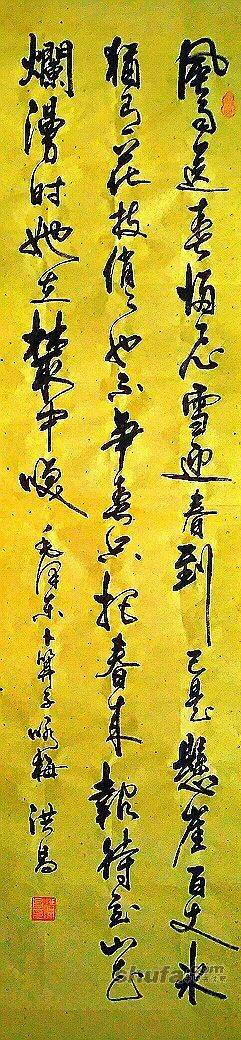 風雨送春歸飛雪迎春到已是懸崖百丈冰
猶有花枝俏々也不爭春只把春来報待到山花
爛漫时她在叢中咲 毛澤东卜算子咏梅 洪
shufa.com